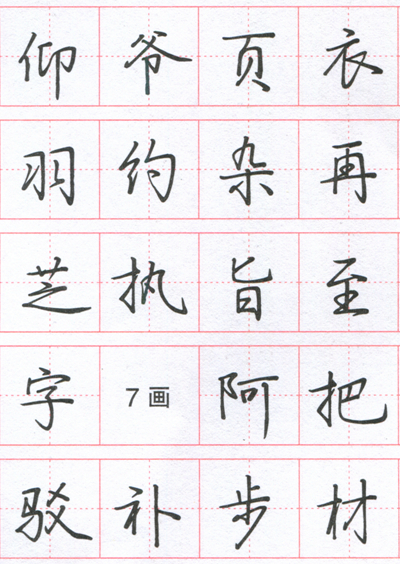 仰 爷 页 衣
羽 约 杂 再
芝 执 旨 至
字 7画 阿 把
驳 补 步 材